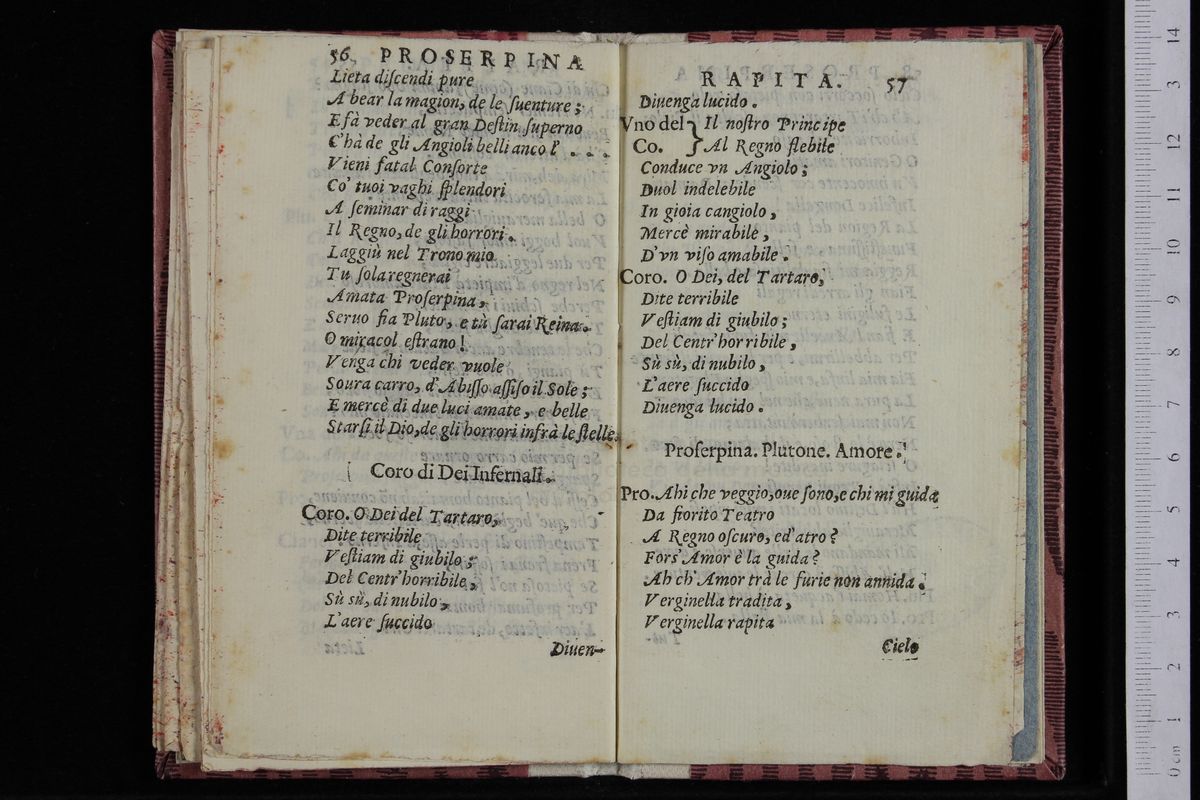 56. PROSERPINA
Lieta discendi pure
A bear la magion, de le suenture;
E fà veder al gran Destin superno
C'hà de gli Angioli belli anco l' . . .
Vieni fatal Consorte
Co' tuoi vaghi splendori
A seminar di raggi
Il Regno, de gli horrori.
Laggiù nel Trono mio
Tu sola regnerai
Amata Proserpina,
Seruo fia Pluto, e tù sarai Reina.
O miracol estrano!
Venga chi veder vuole
Soura carro, d'Abisso assiso il Sole;
E mercè di due luci amate, e belle
Starsi il Dio, de gli horrori infrà le stelle.
Coro di Dei Infernali.
Coro. O Dei del Tartaro,
Dite terribile
Vestiam di giubilo;
Del Centr'horribile,
Sù sù, di nubilo,
L'aere succido
Diuen-
RAPITA. 57
Diuenga lucido.
Vno del } Il nostro Principe
Co. } Al Regno flebile
Conduce vn Angiolo;
Duol indelebile
In gioia cangiolo,
Mercè mirabile,
D'vn viso amabile.
Coro. O Dei, del Tartaro,
Dite terribile
Vestiam di giubilo;
Del Centr'horribile,
Sù sù, di nubilo,
L'aere succido
Diuenga lucido.
Proserpina. Plutone. Amore.
Pro. Ahi che veggio, oue sono, e chi mi guida
Da fiorito Teatro
A Regno oscuro, ed'atro?
Fors'Amor è la guida?
Ah ch'Amor trà le furie non annida.
Verginella tradita,
Verginella rapita
Cielo
0 cm 1 2 3 4 5 6 7 8 9 10 11 12 13 14